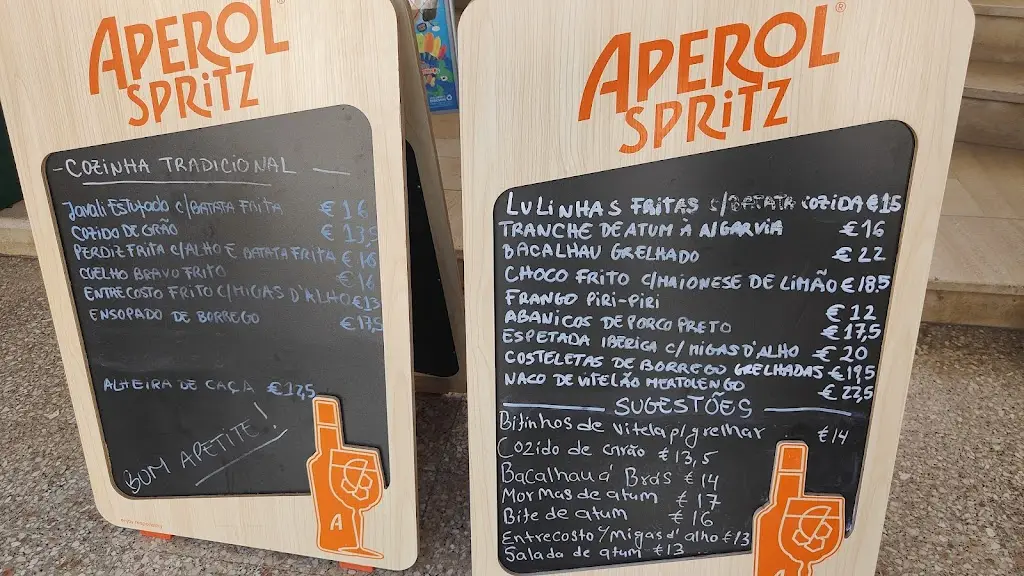 APEROL
SPRITZ
- COZINHA TRADICIONAL -
Javali EStufado C/BATATA FRITA €16
COZIDO DE GRÃO €13,5
PERDIZ FRITA C/ALHO E BATATA FRITA €16
COELHO BRAVO FRITO €16
ENTRECOSTO FRITO C/MIGAS D'ALHO €13
ENSOPADO DE BORREGO €17,5
ALHEIRA DE CAÇA €12,5
BOM APETITE!
A
APEROL®
SPRITZ
LULINHAS FRITAS C/BATATA COZIDA €15
TRANCHE DE ATUM A AlGARVIA €16
BACALHAU GRELHADO €22
CHOCO FRITO C/MAIONESE DE LIMÃO €18,5
FRANGO PIRI-PIRI €12
ABANICOS DE PORCO PRETO €17,5
ESPETADA IBÉRICA C/ MIGAS D'ALHO €20
COSTELETAS DE BORREGO GRELHADAS €19,5
NACO DE VITELÃO MERTOLENGO €23,5
SUGESTÕES
Bifinhos de vitela p/grelhar €14
Cozido de Grão €13,5
Bacalhau á Brás €14
Mormas de atum €17
Bife de atum €16
Entrecosto c/Migas d'alho €13
Salada de atum €13